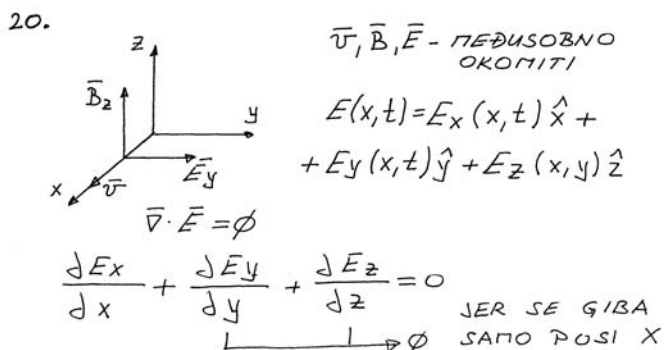 20.
z
B̄z
y
Ēy
x
v̄
v̄, B̄, Ē - MEĐUSOBNO
OKOMITI
E(x,t)=Ex(x,t)x̂ +
+Ey(x,t)ŷ+Ez(x,y)ẑ
∇̄·Ē=∅
dEx/dx + dEy/dy + dEz/dz = 0
→∅ JER SE GIBA
SAMO POSI X